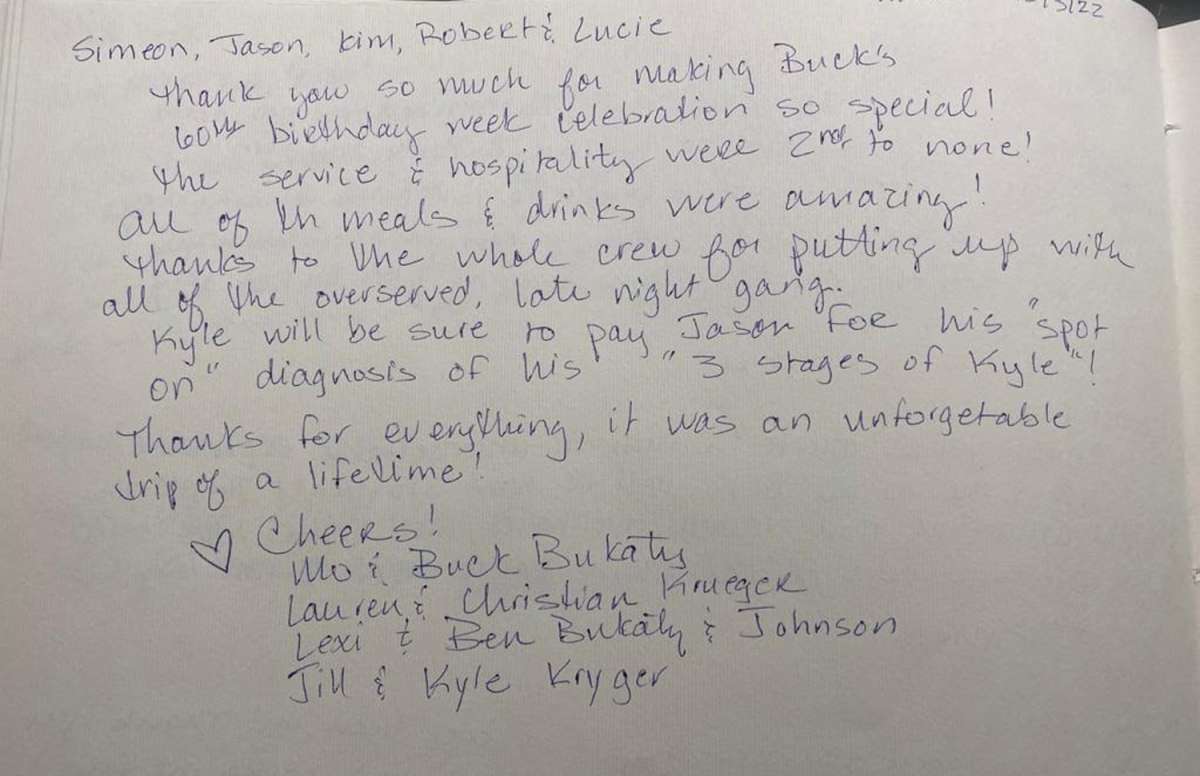 5/22
Simeon, Jason, Kim, Robert & Lucie
Thank you so much for making Buck's
60th birthday week celebration so special!
The service & hospitality were 2nd to none!
All of th meals & drinks were amazing!
Thanks to the whole crew for putting up with
all of the overserved, late night gang.
Kyle will be sure to pay Jason for his "spot
on" diagnosis of his "3 stages of Kyle"!
Thanks for everything, it was an unforgetable
trip of a lifetime!
♡ Cheers!
Mo & Buck Bukaty
Lauren & Christian Krueger
Lexi & Ben Bukaty & Johnson
Jill & Kyle Kryger